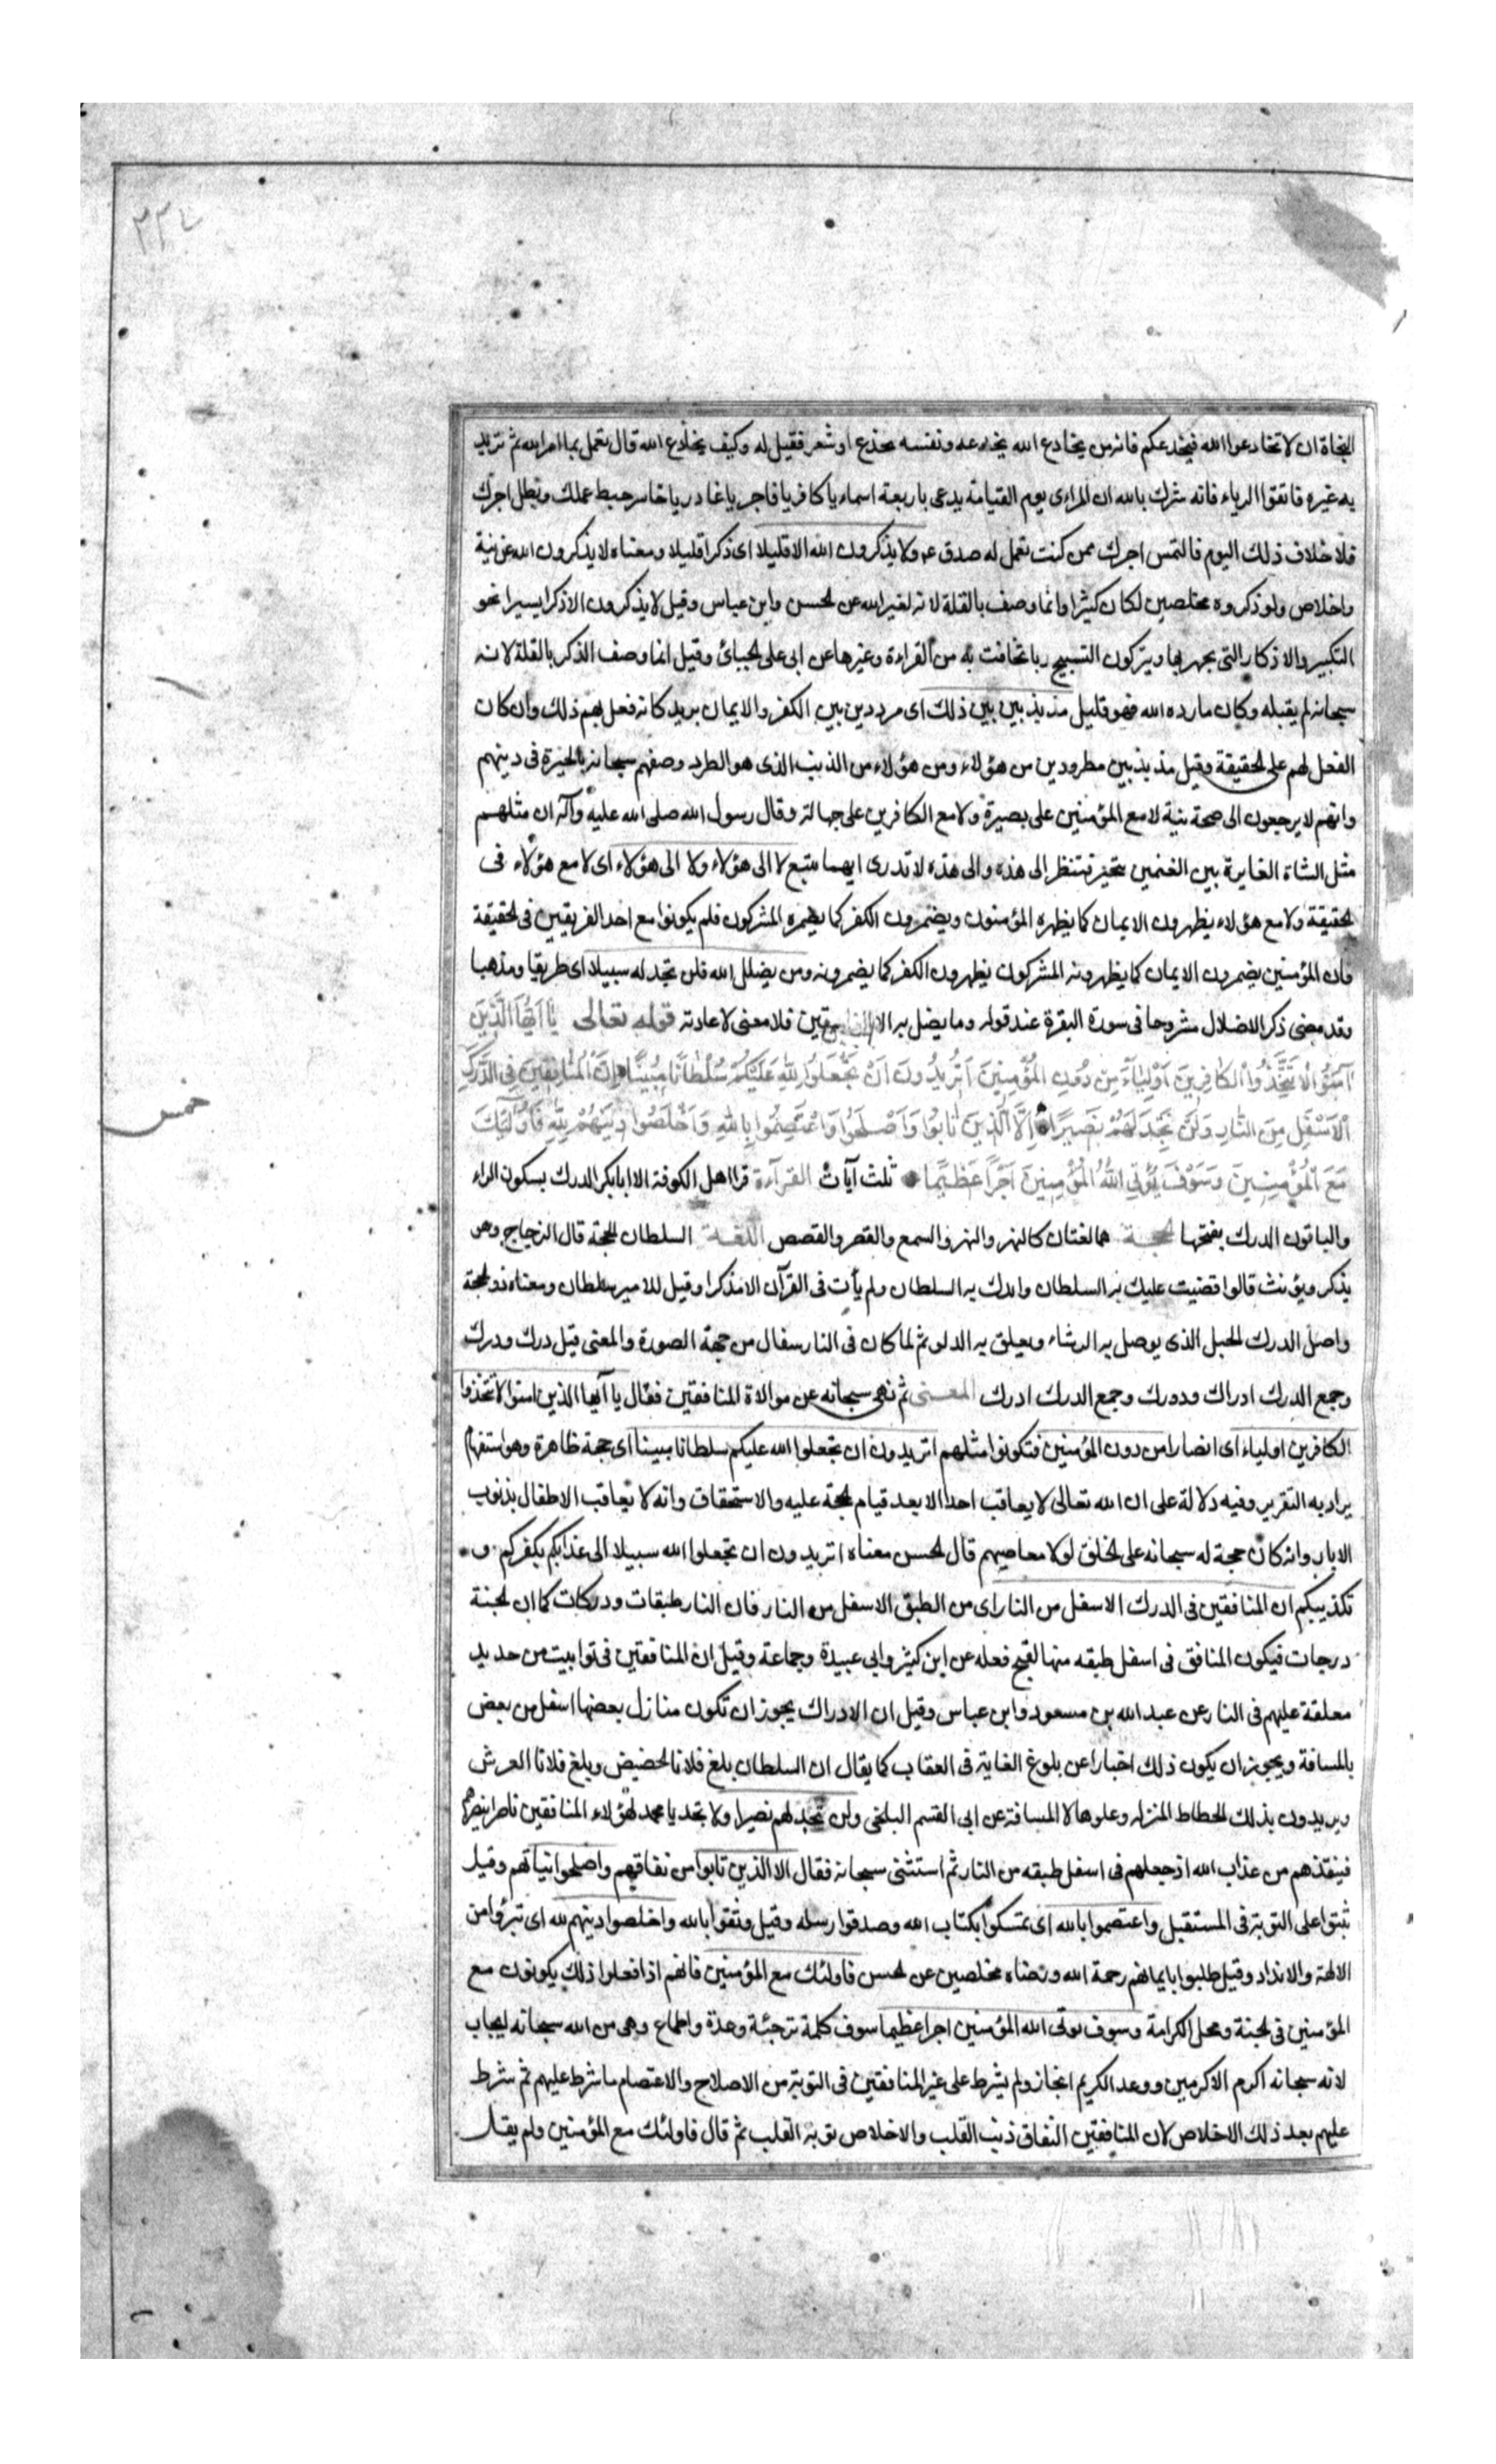 ٣٣٤
النجاة ان لا تخادعوا الله فيخدعكم فانه من يخادع الله يخدعه ونفسه يخدع او شعر فقيل له وكيف يخادع الله قال تعمل بما امر الله ثم تريد
به غيره فاتقوا الرياء فانه شرك بالله ان المرائى يوم القيامة يدعى باربعة اسماء يا كافر يا فاجر يا غادر يا خاسر حبط عملك وبطل اجرك
فلا خلاف ذلك اليوم فالتمس اجرك ممن كنت تعمل له ولا يذكرون الله الا قليلا اى ذكرا قليلا ومعناه لا يذكرون الله عن نية
واخلاص ولو ذكروه مخلصين لكان كثيرا وانما وصف بالقلة لانه لغير الله عن لحسن وابن عباس وقيل لا يذكرون الا ذكرا يسيرا نحو
التكبير والاذكار التى يجهر بها ويتركون التسبيح وما تخافت به من القراءة وغيرها عن ابى على لجبائى وقيل انما وصف الذكر بالقلة لانه
سبحانه لم يقبله وكان ما رده الله فهو قليل مذبذبين بين ذلك اى مرددين بين الكفر والايمان يريد كانه فعل بهم ذلك وان كان
الفعل لهم على لحقيقة وقيل مذبذبين مطرودين من هؤلاء ومن هؤلاء من الذبب الذى هو الطرد وصفهم سبحانه بالحيرة فى دينهم
وانهم لا يرجعون الى صحة نية لا مع المؤمنين على بصيرة ولا مع الكافرين على جهالة وقال رسول الله صلى الله عليه وآله ان مثلهم
مثل الشاة الغايرة بين الغنمين تتحير فتنظر الى هذه والى هذه لا تدرى ايهما تتبع لا الى هؤلاء ولا الى هؤلاء اى لا مع هؤلاء فى
لحقيقة ولا مع هؤلاء يظهرون الايمان كما يظهره المؤمنون ويضمرون الكفر كما يضمره المشركون فلم يكونوا مع احد الفريقين فى لحقيقة
فان المؤمنين يضمرون الايمان كما يظهرونه المشركون يظهرون الكفر كما يضمرونه ومن يضلل الله فلن تجد له سبيلا اى طريقا ومذهبا
وقد مضى ذكر الاضلال مشروحا فى سورة البقرة عند قوله وما يضل به الا الفاسقين فلا معنى لاعادته قوله تعالى يَا اَيُّهَا الَّذِينَ
آمَنُوا لَا تَتَّخِذُوا الْكَافِرِينَ اَوْلِيَآءَ مِنْ دُونِ الْمُؤْمِنِينَ اَتُرِيدُونَ اَنْ تَجْعَلُوا لِلَّهِ عَلَيْكُمْ سُلْطَانًا مُبِينًا اِنَّ الْمُنَافِقِينَ فِى الدَّرْكِ
الْاَسْفَلِ مِنَ النَّارِ وَلَنْ تَجِدَ لَهُمْ نَصِيرًا اِلَّا الَّذِينَ تَابُوا وَاَصْلَحُوا وَاعْتَصَمُوا بِاللهِ وَاَخْلَصُوا دِينَهُمْ لِلَّهِ فَاُولَٰئِكَ
خمس
مَعَ الْمُؤْمِنِينَ وَسَوْفَ يُؤْتِى اللهُ الْمُؤْمِنِينَ اَجْرًا عَظِيمًا ثلث آيات القرآءة قرا اهل الكوفة الا ابا بكر الدرك بسكون الراء
والباقون الدرك بفتحها لحجة هما لغتان كالنهر والنهر والسمع والقصر والقصص اللغة السلطان لحجة قال الزجاج وهو
يذكر ويؤنث قالوا قضيت عليك به السلطان وامرك به السلطان ولم يأت فى القرآن الا مذكرا وقيل للامير سلطان ومعناه ذو لحجة
واصل الدرك لحبل الذى يوصل به الرشاء ويعلق به الدلو ثم لما كان فى النار سفال من جهة الصورة والمعنى قيل درك ودرك
وجمع الدرك ادراك ودورك وجمع الدرك ادرك المعنى ثم نهى سبحانه عن موالاة المنافقين فقال يا ايها الذين امنوا لا تتخذوا
الكافرين اولياء اى انصارا من دون المؤمنين فتكونوا مثلهم اتريدون ان تجعلوا الله عليكم سلطانا مبينا اى حجة ظاهرة وهو استفهام
يراد به التقرير وفيه دلالة على ان الله تعالى لا يعاقب احدا الا بعد قيام لحجة عليه والاستحقاق وانه لا يعاقب الاطفال بذنوب
الاباء وانه كان حجة له سبحانه على لخلق لولا معاصيهم قال لحسن معناه اتريدون ان تجعلوا الله سبيلا الى عذابكم بكفركم و
تكذيبكم ان المنافقين فى الدرك الاسفل من النار اى من الطبق الاسفل من النار فان النار طبقات ودركات كما ان لجنة
درجات فيكون المنافق فى اسفل طبقه منها لقبح فعله عن ابن كثير وابى عبيدة وجماعة وقيل ان المنافقين فى توابيت من حديد
معلقة عليهم فى النار عن عبد الله بن مسعود وابن عباس وقيل ان الادراك يجوز ان تكون منازل بعضها اسفل من بعض
بالمسافة ويجوز ان يكون ذلك اخبارا عن بلوغ الغاية فى العقاب كما يقال ان السلطان بلغ فلانا لحضيض وبلغ فلانا العرش
ويريدون بذلك لحطاط المنزله وعلوها لا المسافة عن ابى القسم البلخى ولن تجد لهم نصيرا ولا تجد يا محمد لهؤلاء المنافقين ناصرا ينصرهم
فينقذهم من عذاب الله اذ جعلهم فى اسفل طبقه من النار ثم استثنى سبحانه فقال الا الذين تابوا من نفاقهم واصلحوا نياتهم وقيل
ثبتوا على التوبة فى المستقبل واعتصموا بالله اى تمسكوا بكتاب الله وصدقوا رسله وقيل وثقوا بالله واخلصوا دينهم لله اى تبرؤا من
الالهة والانداد وقيل طلبوا بايمانهم رحمة الله ورضاه مخلصين عن لحسن فاولئك مع المؤمنين فانهم اذا فعلوا ذلك يكونون مع
المؤمنين فى لجنة ومحل الكرامة وسوف يؤتى الله المؤمنين اجرا عظيما سوف كلمة ترجئة وعدة واطماع وهى من الله سبحانه ايجاب
لانه سبحانه اكرم الاكرمين ووعد الكريم انجاز ولم يشرط على غير المنافقين فى التوبة من الاصلاح والاعتصام ما شرط عليهم ثم شرط
عليهم بعد ذلك الاخلاص لان المنافقين النفاق ذنب القلب والاخلاص توبة القلب ثم قال فاولئك مع المؤمنين ولم يقل